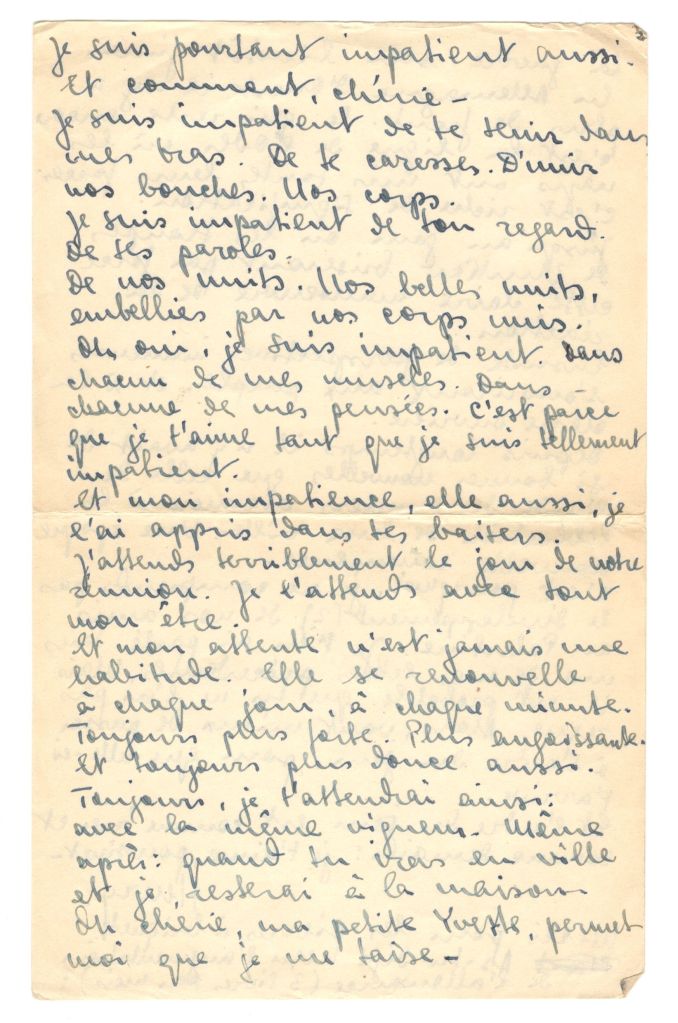 je suis pourtant impatient aussi.
Et comment, chérie –
je suis impatient de te tenir dans
mes bras. De te caresses. D'unir
nos bouches. Nos corps.
je suis impatient de ton regard.
De tes paroles.
De nos nuits. Nos belles nuits,
embellies par nos corps unis.
Oh oui, je suis impatient. Dans
chacun de mes muscles. Dans
chacune de mes pensées. C'est parce
que je t'aime tant que je suis tellement
impatient.
Et mon impatience, elle aussi, je
l'ai appris dans tes baisers.
J'attends terriblement le jour de notre
réunion. Je l'attends avec tout
mon être.
Et mon attente n'est jamais une
habitude. Elle se renouvelle
à chaque jour, à chaque minute.
Toujours plus forte. Plus angoissante.
Et toujours plus douce aussi.
Toujours, je t'attendrai ainsi:
avec la même vigueur. Même
après: quand tu iras en ville
et je resterai à la maison
Oh chérie, ma petite Yvette, permet
moi que je me taise –